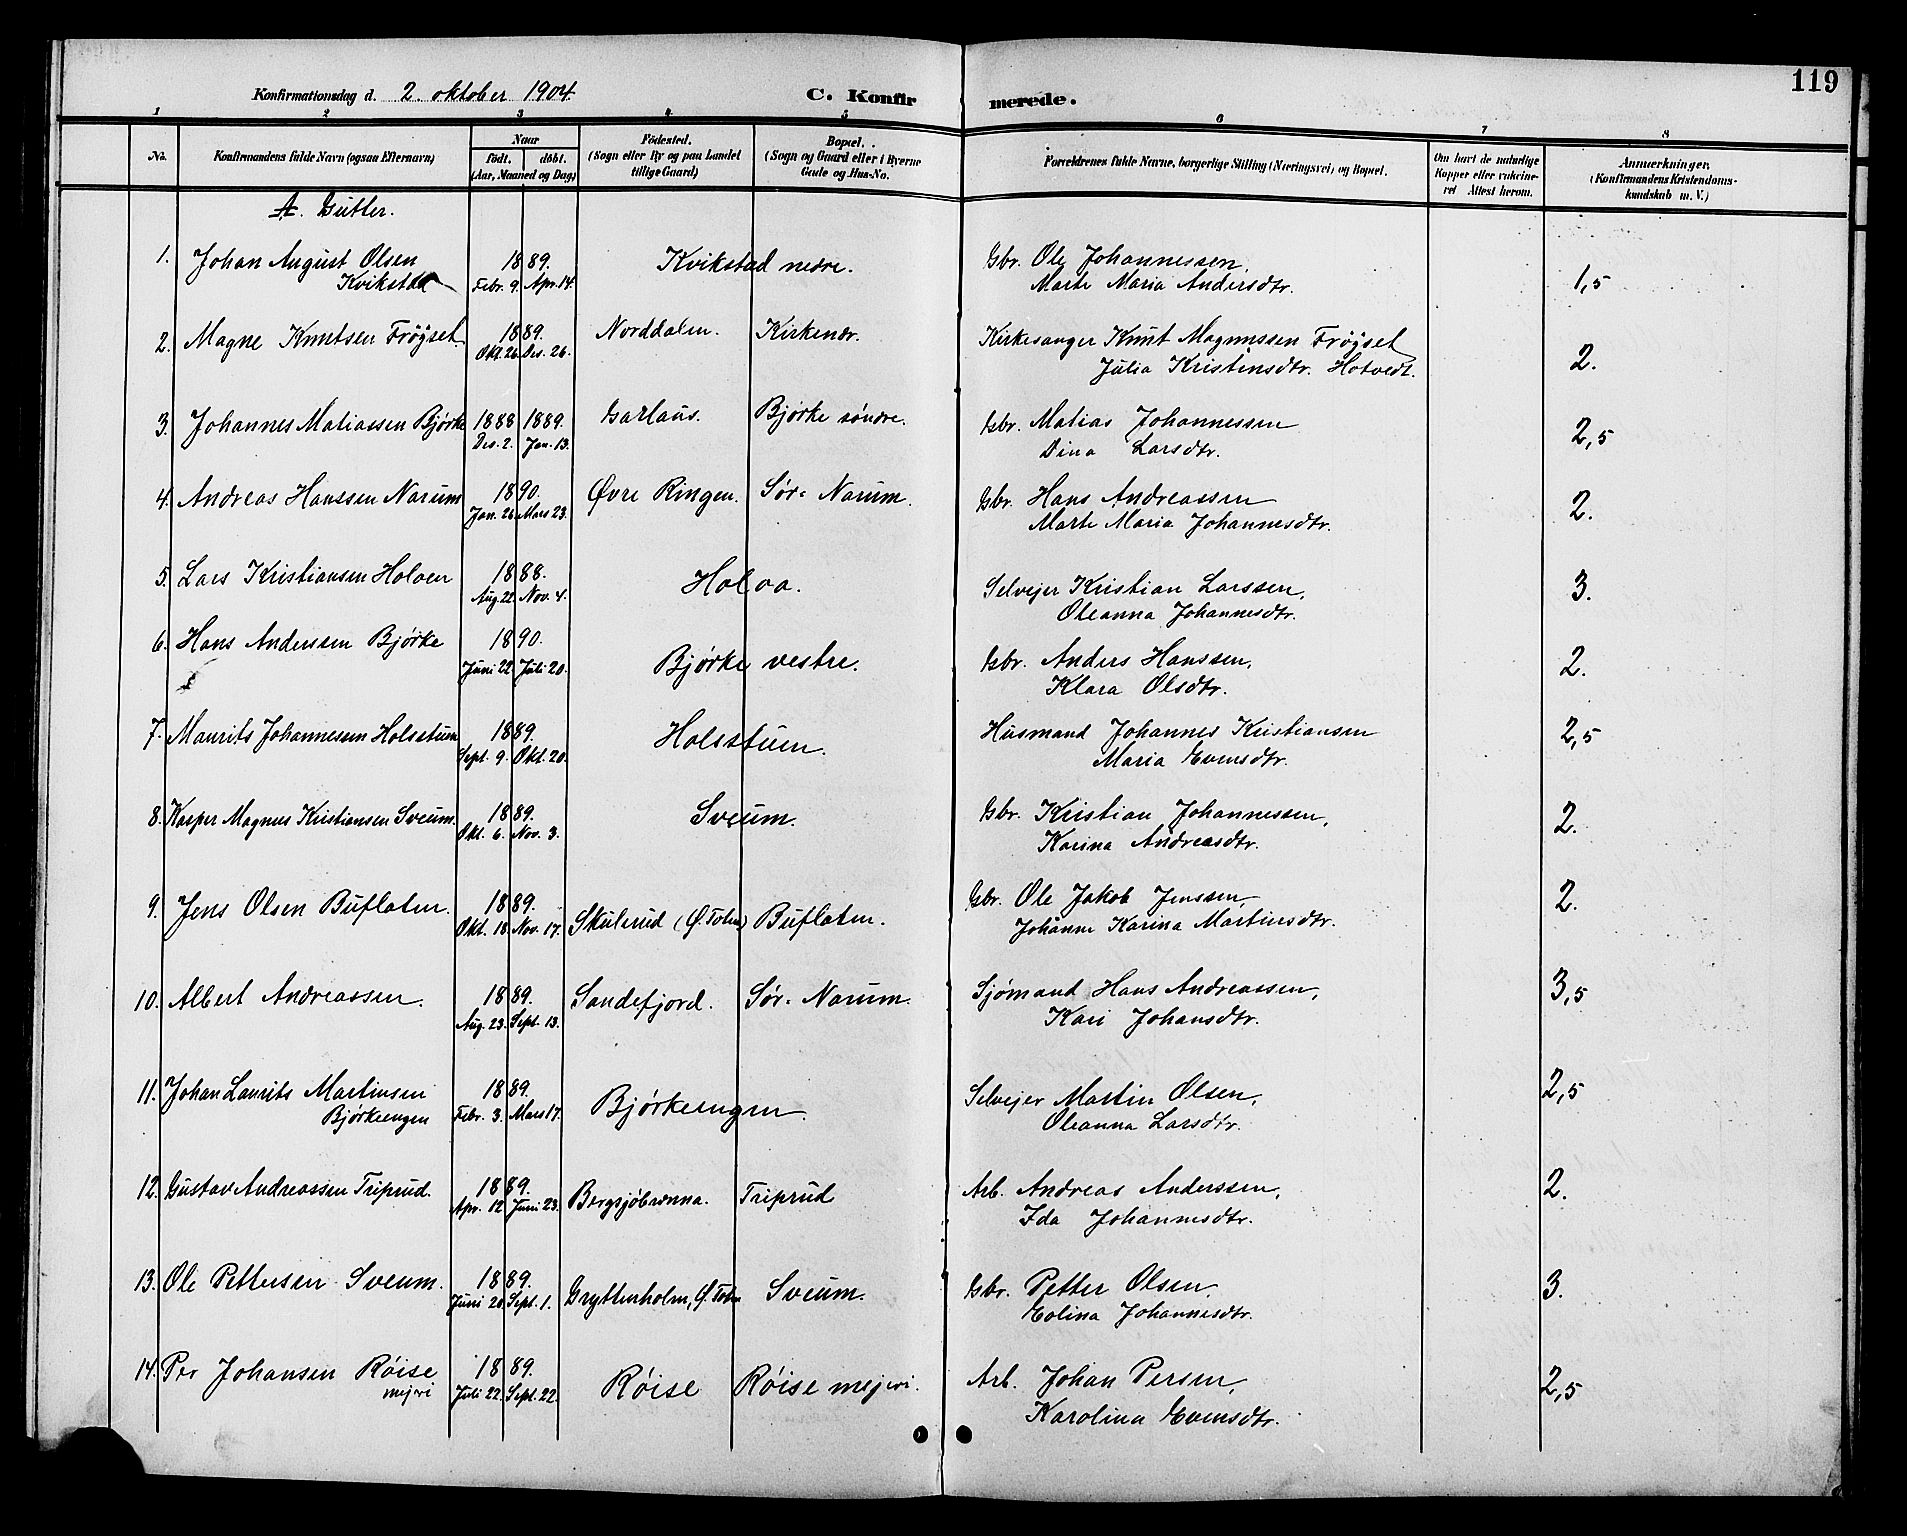 119
Konfirmationsdag d. 2. oktober 1904.
C. Konfirmerede.
1 2 3 4 5 6 7 8
No. Konfirmandens fulde Navn (ogsaa Efternavn) Naar født. døbt. (Aar, Maaned og Dag) Fødested. (Sogn eller By og paa Landet tillige Gaard) Bopæl. (Sogn og Gaard eller i Byerne Gade og Hus-No. Forældrenes fulde Navne, borgerlige Stilling (Næringsvei) og Bopæl. Om havt de naturlige Kopper eller vakcineret Attest herom. Anmærkninger. (Konfirmandens Kristendomskundskab m. V.)
A. Gutter.
1. Johan August Olsen 1889. Kvikstad nedre. Gbr. Ole Johannessen,
Kvikstad Febr. 9. Apr. 14. Marte Maria Andersdtr. 1,5
2. Magne Knutsen Frøyset. 1889. Norddalen. Kirkenær. Kirkesanger Knut Magnussen Frøyset
Okt. 26. Des. 26. Julia Kristensdtr. Hotvedt. 2.
3. Johannes Matiassen Bjørke 1888 1889. Garlaus. Bjørke søndre. Gbr. Matias Johannessen
Des. 2. Jan. 13. Dina Larsdtr. 2,5
4. Andreas Hanssen Narum 1890. Øvre Ringen. Sør-Narum. Gbr. Hans Andreassen
Jan. 26. Mars 23. Marte Maria Johannesdtr. 2.
5. Lars Kristiansen Holoen 1888. Holoa. Selvejer Kristian Larssen,
Aug. 22. Nov. 4. Oleanna Johannesdtr. 3.
6. Hans Anderssen Bjørke 1890. Bjørke vestre. Gbr. Anders Hanssen,
Juni 22. Juli 20. Klara Olsdtr. 2.
7. Maurits Johannessen Holsstuen 1889. Holsstuen. Husmand Johannes Kristiansen
Sept. 9. Okt. 20. Maria Evensdtr. 2,5
8. Kasper Magnus Kristiansen Sveum. 1889. Sveum. Gbr. Kristian Johannessen,
Okt. 6. Nov. 3. Karina Andreasdtr. 2.
9. Jens Olsen Buflaten. 1889. Skulerud (Ø. Toten) Buflaten. Gbr. Ole Jakob Jenssen,
Okt. 18. Nov. 17. Johanne Karina Martinsdtr. 2.
10. Albert Andreassen. 1889. Sandefjord. Sør-Narum. Sjømand Hans Andreassen,
Aug. 23. Sept. 13. Kari Johansdtr. 3,5
11. Johan Laurits Martinsen 1889. Bjørkeengen. Selvejer Martin Olsen,
Bjørkeengen Febr. 3. Mars 17. Oleanna Larsdtr. 2,5
12. Gustav Andreassen Triprud. 1889. Bergsjøbrønna. Triprud Arb. Andreas Anderssen,
Apr. 12 Juni 23. Ida Johannesdtr. 2.
13. Ole Pettersen Sveum. 1889. Gryttenholm, Ø. Toten Sveum. Gbr. Petter Olsen,
Juni 20. Sept. 1. Eolina Johannesdtr. 3.
14. Per Johansen Røise 1889. Røise Røise mejeri. Arb. Johan Persen,
mejeri Juli 22. Sept. 22. Karolina Evensdtr. 2,5